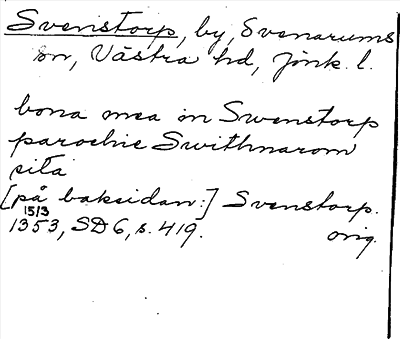 Svenstorp, by, Svenarums
sn, Västra hd, Jönk. l.
bona mea in Swenstorp
parochie Swithnarom
sita
[på baksidan:] Svenstorp.
15/3
1353, SD 6, s. 419. orig.